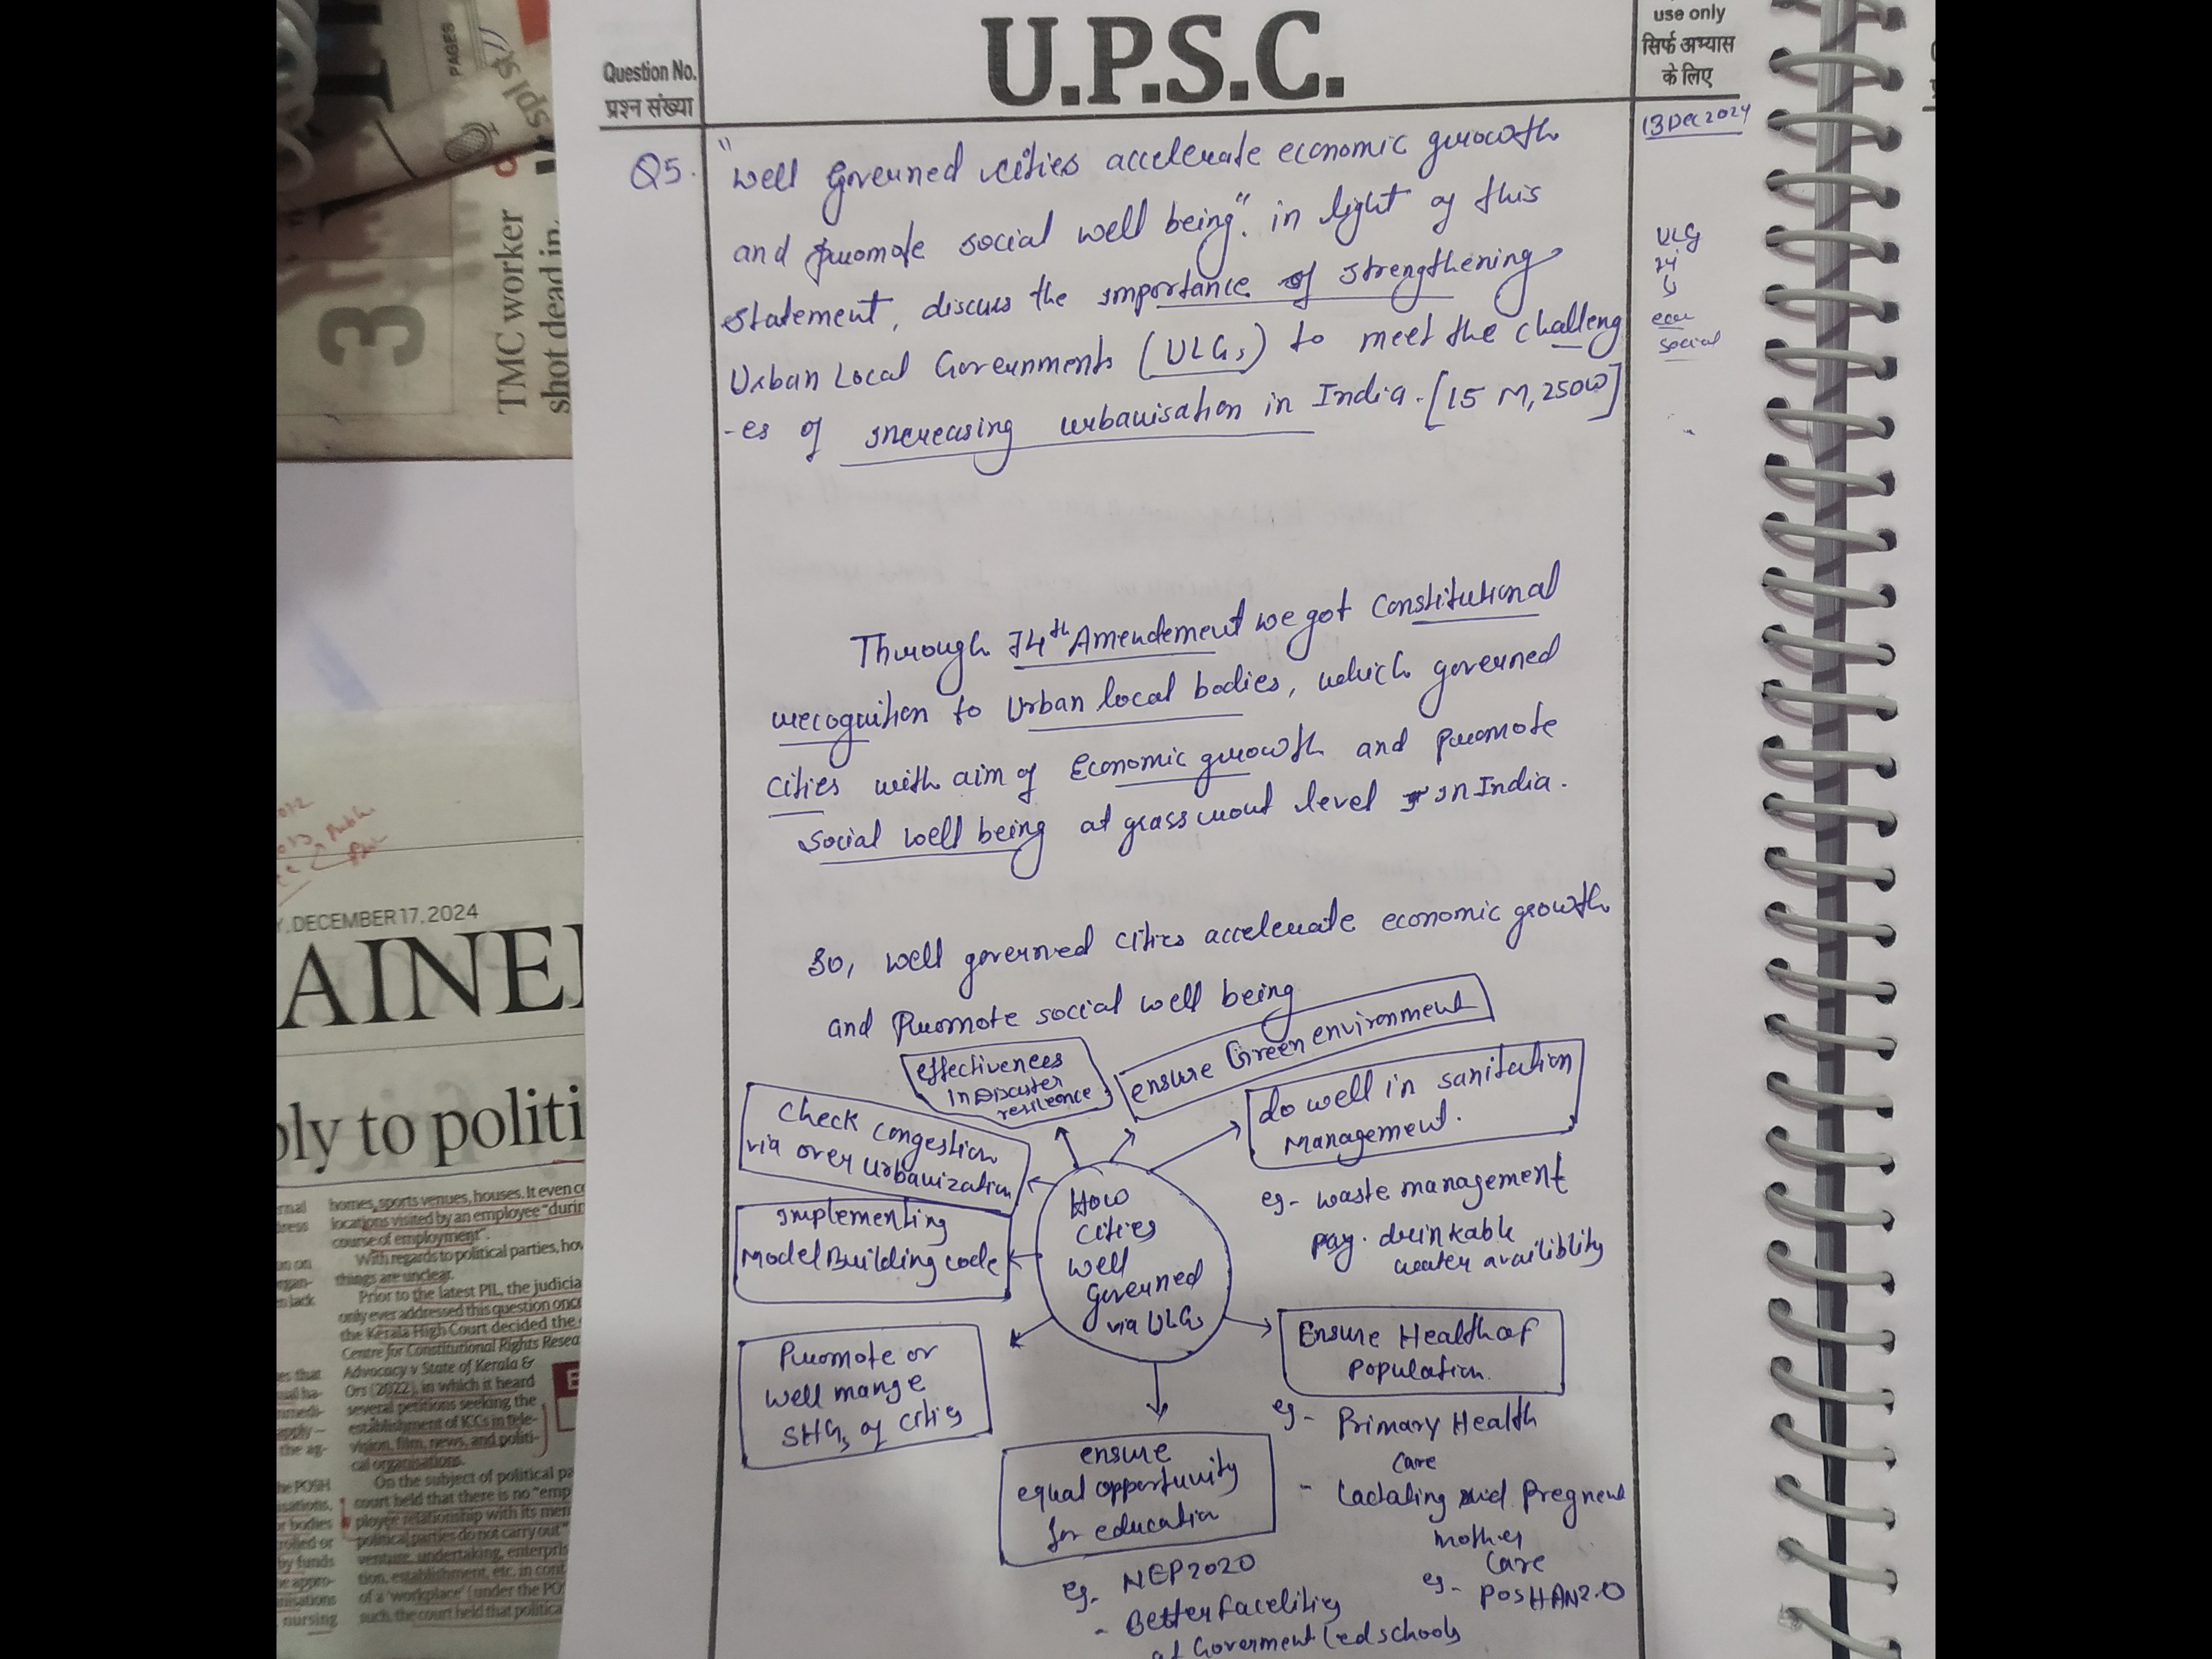 PAGES
spl sl
3
TMC worker
shot dead in
DECEMBER 17, 2024
AINE
ply to politi
homes, sports venues, houses. It even c
locations visited by an employee "durin
course of employment".
With regards to political parties, hov
things are unclear.
Prior to the latest PIL, the judicia
only ever addressed this question once
the Kerala High Court decided the
Centre for Constitutional Rights Resea
Advocacy v State of Kerala &
Ors (2022), in which it heard
several petitions seeking the
establishment of ICCs in tele-
vision, film, news, and politi-
cal organisations.
On the subject of political pa
court held that there is no "emp
ployee relationship with its men
political parties do not carry out"
venture, undertaking, enterpris
establishment, etc. in cont
of a 'workplace' (under the PO
such, the court held that politica
Question No.
प्रश्न संख्या
U.P.S.C.
use only
सिर्फ अभ्यास
के लिए
13 Dec 2024
Q5.
"well Governed cities accelerate economic growth
and promote social well being". in light of this
statement, discuss the importance of strengthening
Urban Local Governments (ULGs) to meet the challeng
-es of increasing urbanisation in India. [15 M, 250W]
ULG
74
eco
social
Through 74th Amendement we got Constitutional
recognition to Urban local bodies, which governed
cities with aim of Economic growth and promote
social well being at grass rout level in India.
So, well governed cities accelerate economic growth
and Promote social well being
effectivenees
in Discuter
resileonce
ensure Green environment
do well in sanitation
Management.
eg- waste management
pay. drinkable
water availiblity
Check congestion
via over urbanization
Implementing
Model Building code
How
cities
well
governed
via ULGs
Promote or
well mange
SHGs of cities
Ensure Health of
Population.
eg- Primary Health
Care
- Lactating and Pregnent
mother
Care
eg- POSHAN 2.0
ensure
equal opportunity
for education
eg. NEP2020
- Better facelities
at Goverment led schools